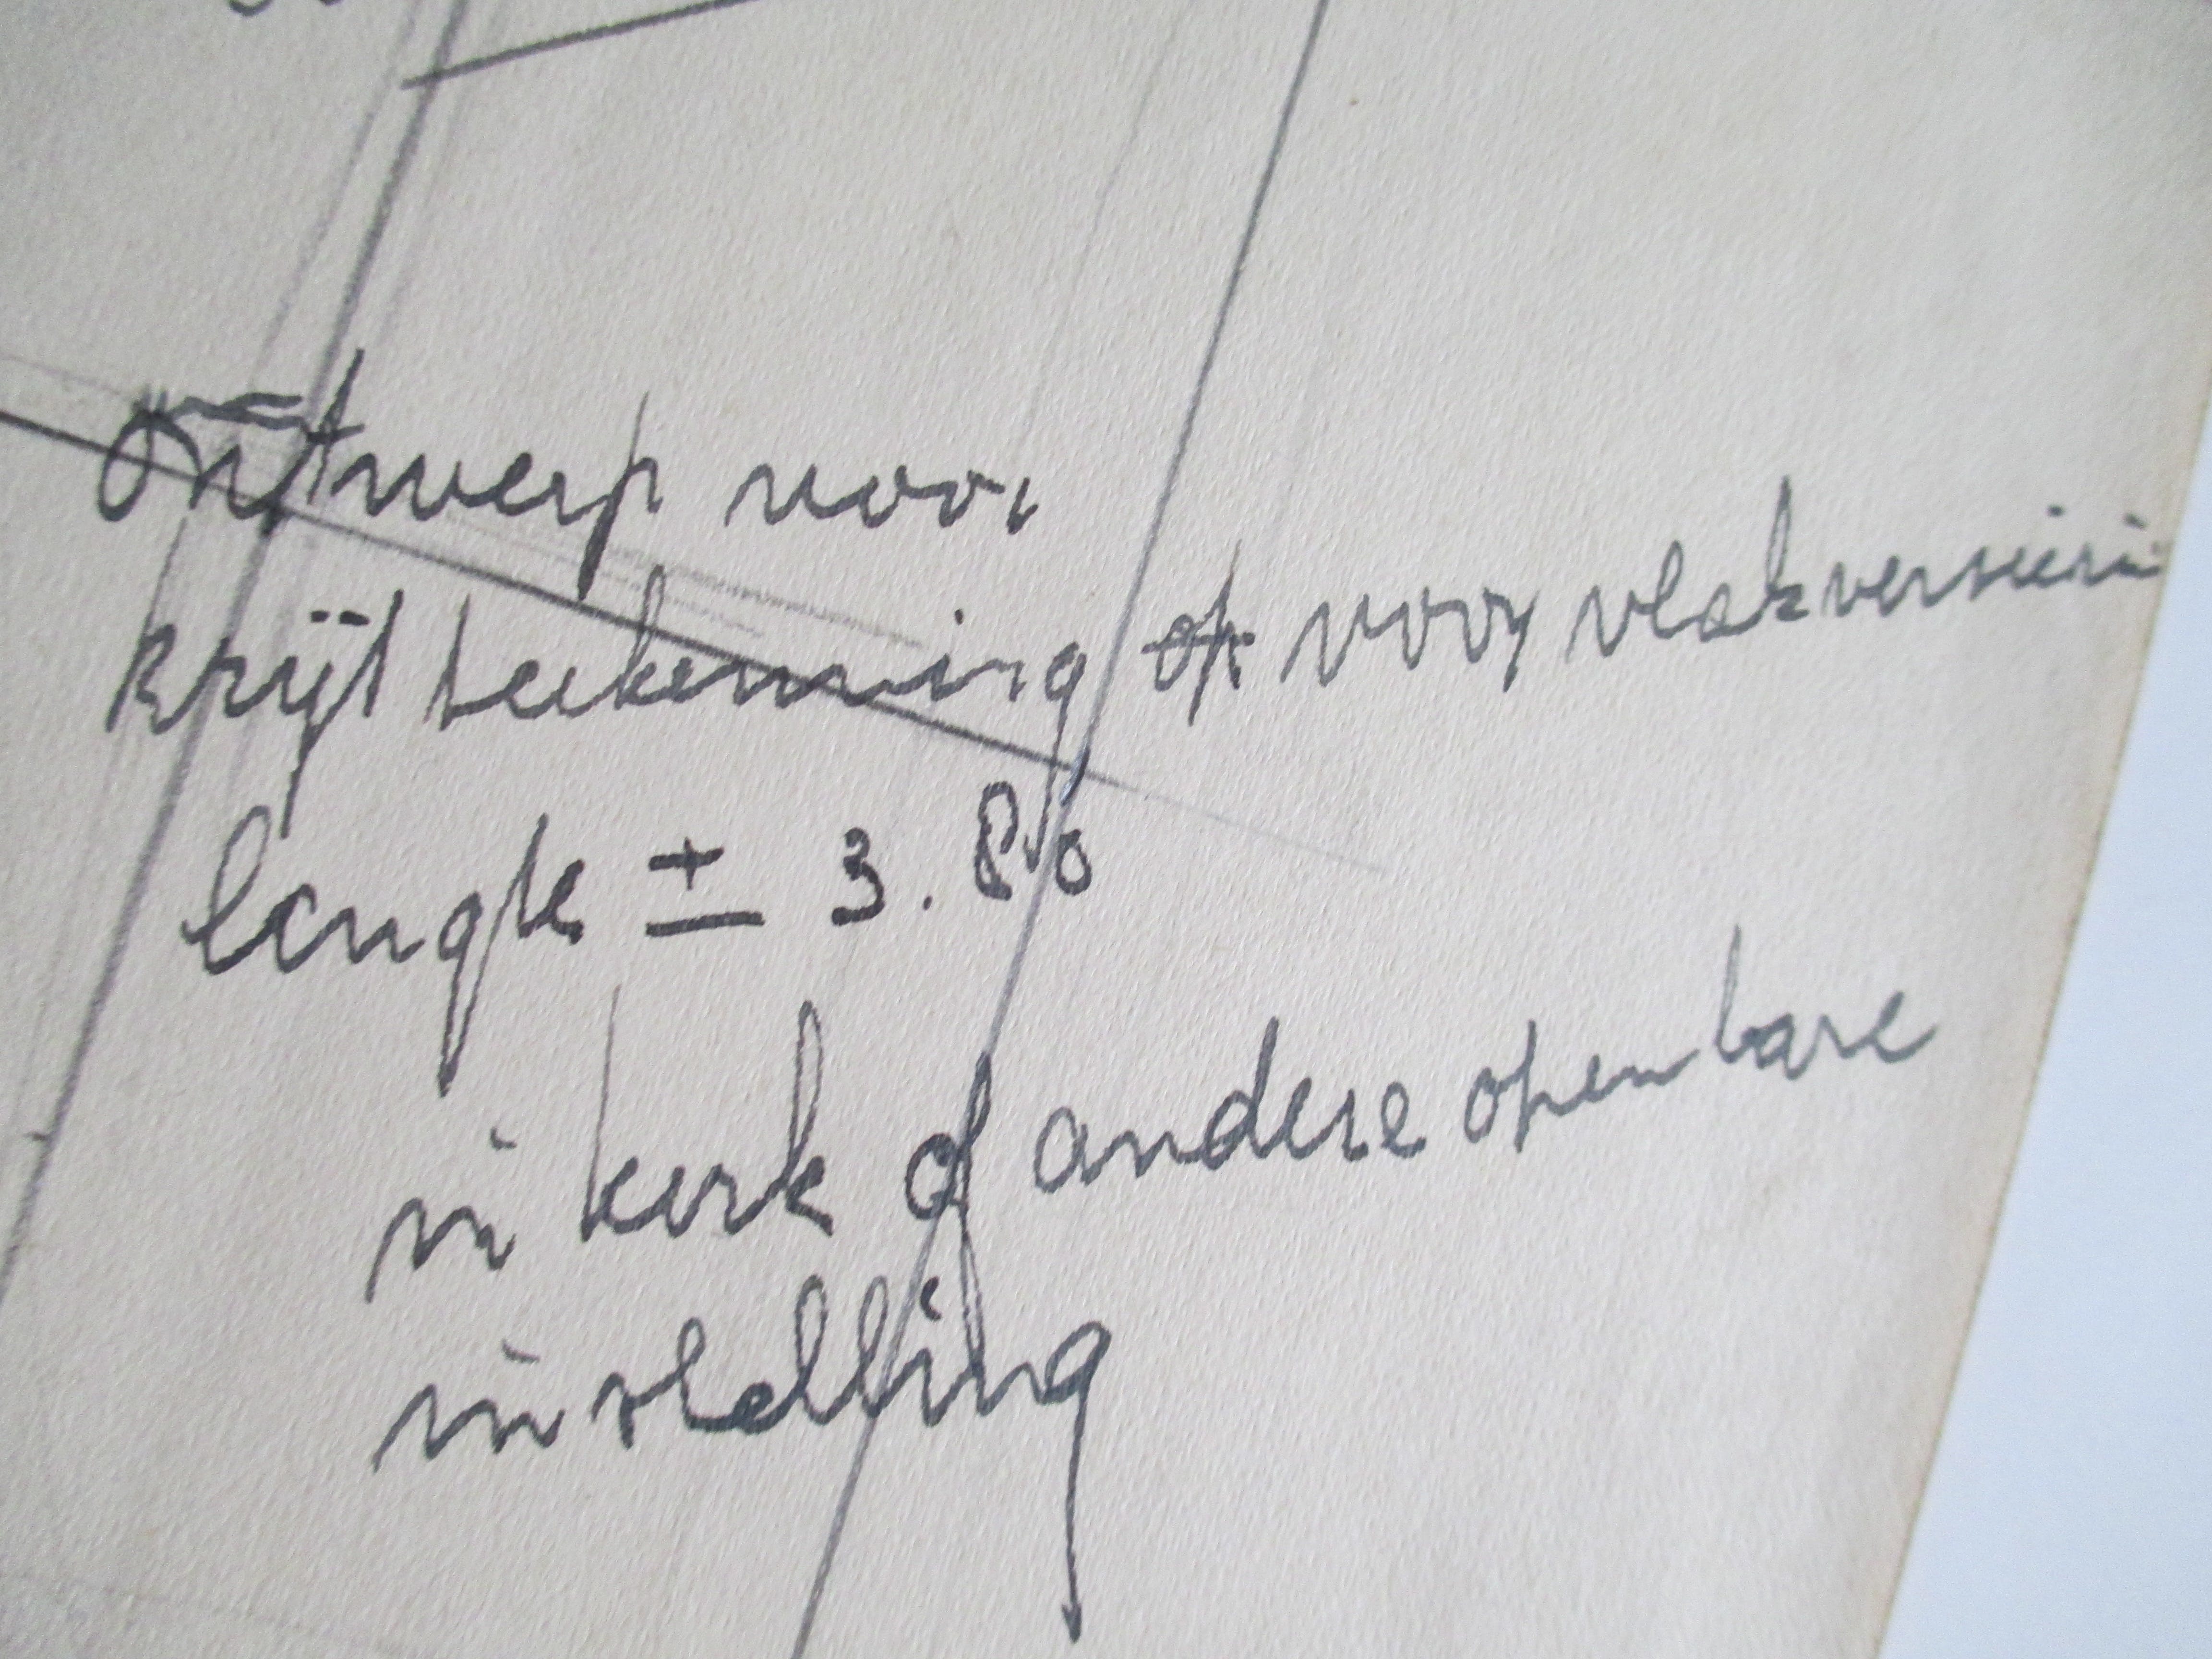 Ontwerp voor
krijt teekening of voor vlakversieri
lengte ± 3.80
in kerk of andere openbare
instelling